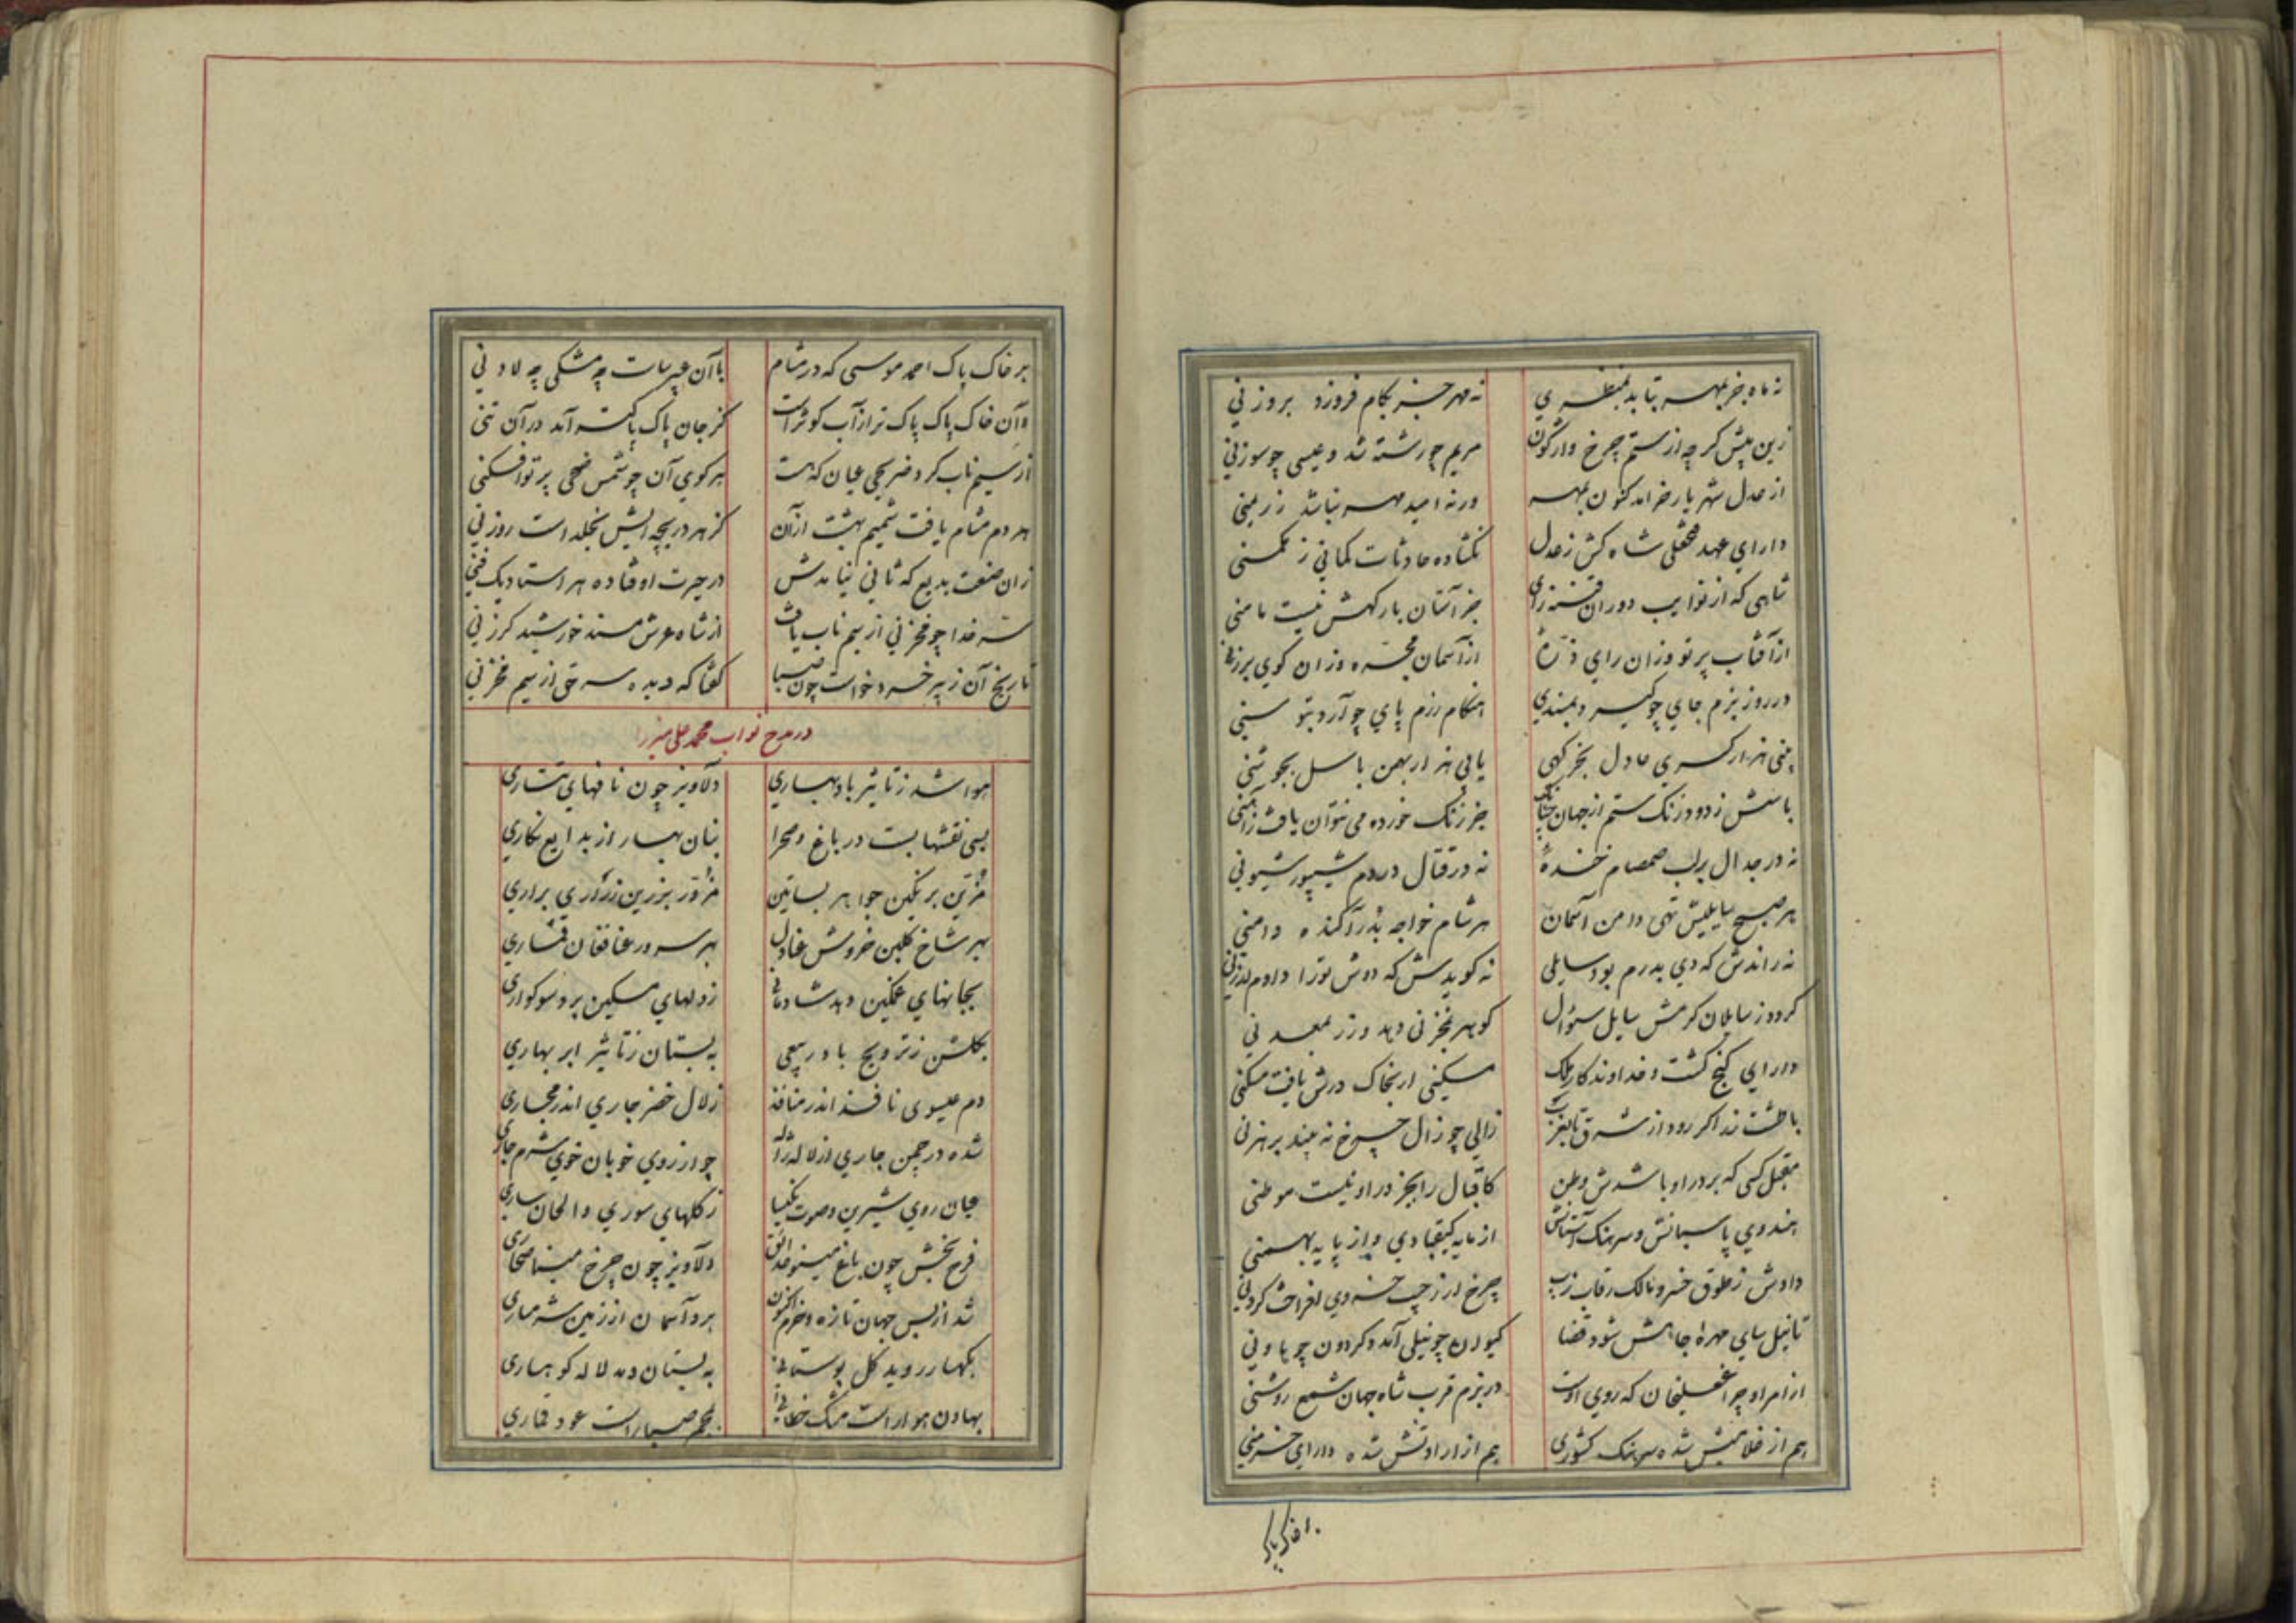 نه ماه جز بمهر بتابد بمنظری نه مهر جز بکام فروزد بروزنی
زین پیش گرچه از ستم چرخ واژگون مریم چو رشته شد و عیسی چو سوزنی
از عدل شهریار خرامد کنون بمهر ورنه امید مهر نباشد ز ریمنی
دارای عهد فتحعلی شاه کش ز عدل نگشاده حادثات کمانی ز مکمنی
شاهی که از نوایب دوران فتنه زای جز آستان بارگهش نیست مامنی
از آفتاب پرتو وزان رای ذرهٔ از آسمان مجره وزان کوی برزنی
در روز بزم جای چو گیرد بمسندی هنگام رزم پای چو آرد بتوسنی
بینی هزار کسری عادل بخرگهی یابی هزار بهمن باسل بجوشنی
باسش زدود زنگ ستم از جهان جز زنگ خورده می نتوان یافت زآهنی
نه در جدال بر لب صمصام خندهٔ نه در قتال در دم شیپور شیونی
هر صبح سایلیش تهی دامن آسمان هر شام خواجه بدر آکنده دامنی
نه راندش که دی بدرم بود سایلی نه گویدش که دوش تو را دادم
گردد ز سایلان کرمش سایل سئوال گوهر بمخزنی دهد و زر بمعدنی
دارای گنج گشت و خداوندگار ملک مسکینی ار بخاک درش یافت مسکنی
با طشت زر اگر رود از شرق تا بغرب زالی چو زال چرخ نه بیند برهزنی
مقبل کسی که بر در او باشدش وطن کاقبال را بجز در او نیست موطنی
هندوی پاسبانش و سرهنگ آستانش از مایه کیقبادی و از پایه بهمنی
دادش ز طوق خسرو مالک رقاب زیب چرخ ار ز جیب خسروی افراخت گردنی
تا نیل سای مهرهٔ جاهش شود قضا کیوان چو نیلی آمد و گردون چو هاونی
از امر او چراغعلیخان که روی اوست در بزم قرب شاه جهان شمع روشنی
هم از غلامیش شده سرهنگ کشوری هم از ارادتش شده دارای خرمنی
بر خاک پاک
بر خاک پاک احمد موسی که در مشام با آن عبیرسات چه مشکی چه لادنی
وآن خاک پاک پاک تر از آب کوثر است کز جان پاک پاکتر آمد در آن تنی
از سیم ناب کرد ضریحی عیان که هست هر کوی آن چو شمس ضحی پرتو افکنی
هر دم مشام یافت شمیم بهشت از آن کز هر دریچه ایش بخلد است روزنی
زان صنعت بدیع که ثانی نیامدش در حیرت اوفتاده هر استاد یک فنی
سر خدا چو مخزنی از سیم ناب یافت از شاه عرش مسند خورشید گرزنی
تاریخ آن ز پیر خرد خواست چون صبا گفتا که دیده سر حق از سیم مخزنی
در مدح نواب محمد علی میرزا
هوا شد ز تاثیر باد بهاری دلاویز چون نافهای تتاری
بسی نقشها بست در باغ و صحرا بنان بهار از بدایع نگاری
مزین بر نگین جواهر بساتین مزور بزرین زراری براری
بهر شاخ گلبن خروش عنادل بهر سرو بر عنا فغان قماری
بجانهای غمگین دهد شادمانی ز دلهای مسکین برد سوگواری
بگلشن ز ترویح باد ربیعی به بستان ز تاثیر ابر بهاری
دم عیسوی نافذ اندر منافذ زلال خضر جاری اندر مجاری
شده در چمن جاری از لاله ژاله چو از روی خوبان خوی شرم جاری
عیان روی شیرین و صوت نکیسا ز گلهای سوری و الحان ساری
فرح بخش چون باغ مینو حدائق دلاویز چون چرخ مینا صحاری
شد از بس جهان تازه و خرم اکنون برد آسمان از زمین شرمساری
بکهسار روید گل بوستانی به بستان دمد لاله کوهساری
بهاون هوا راست مشک خطائی بمجمر صبا راست عود قماری